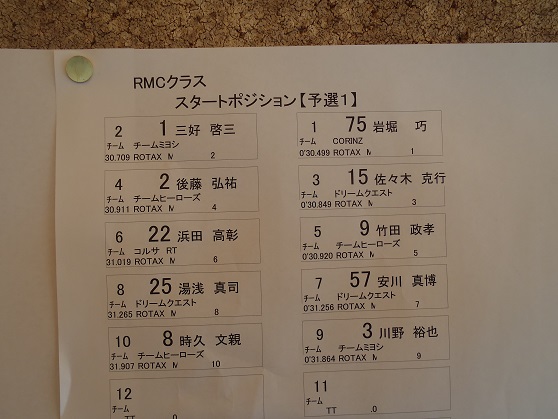 RMCクラス
スタートポジション【予選1】
2 1 三好 啓三
チーム チームミヨシ
30.709 ROTAX M 2
1 75 岩堀 巧
チーム CORINZ
0'30.499 ROTAX M 1
4 2 後藤 弘祐
チーム チームヒーローズ
30.911 ROTAX M 4
3 15 佐々木 克行
チーム ドリームクエスト
0'30.849 ROTAX M 3
6 22 浜田 高彰
チーム コルサ RT
31.019 ROTAX M 6
5 9 竹田 政孝
チーム チームヒーローズ
0'30.920 ROTAX M 5
8 25 湯浅 真司
チーム ドリームクエスト
31.265 ROTAX M 8
7 57 安川 真博
チーム ドリームクエスト
0'31.256 ROTAX M 7
10 8 時久 文親
チーム チームヒーローズ
31.907 ROTAX M 10
9 3 川野 裕也
チーム チームミヨシ
0'31.864 ROTAX M 9
12
チーム
TT .0
11
チーム
TT .0